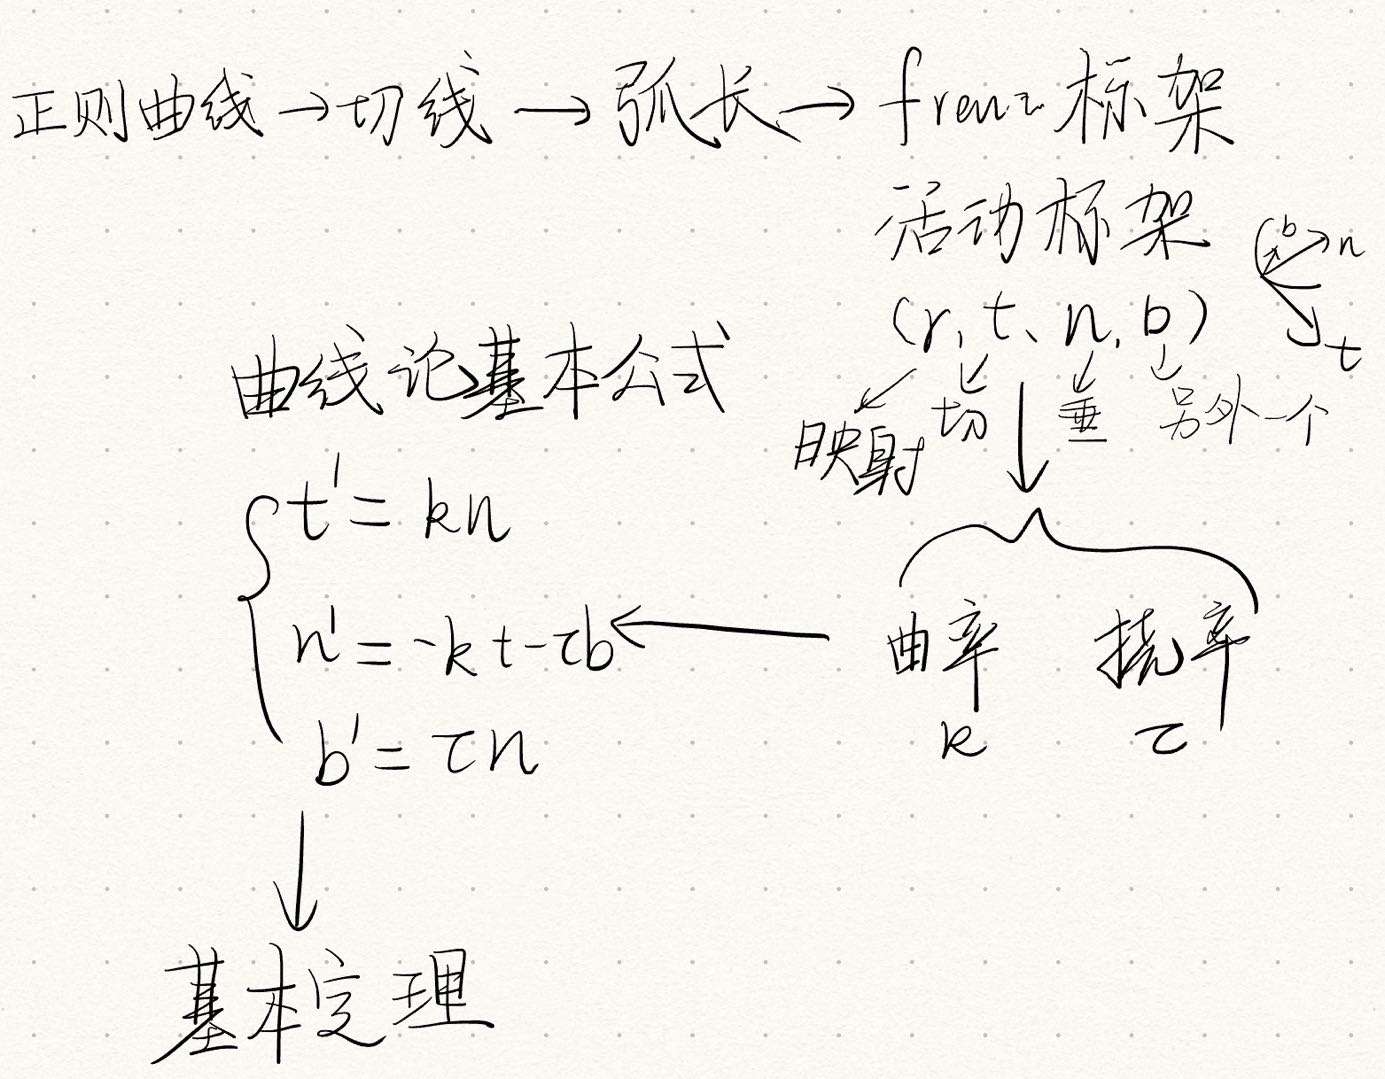 正则曲线→切线→弧长→frenz标架
活动标架
b n
(r, t、n, b)
t
映射 切 垂 另外一个
曲线论基本公式
t' = kn
n' = -kt-τb
b' = τn
曲率 挠率
k τ
基本定理